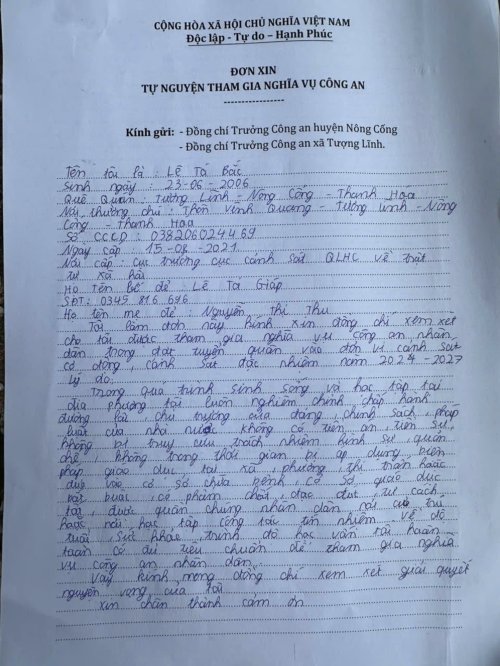 CỘNG HÒA XÃ HỘI CHỦ NGHĨA VIỆT NAM
Độc lập - Tự do – Hạnh Phúc
ĐƠN XIN
TỰ NGUYỆN THAM GIA NGHĨA VỤ CÔNG AN
-----------------
Kính gửi: - Đồng chí Trưởng Công an huyện Nông Cống
- Đồng chí Trưởng Công an xã Tượng Lĩnh.
Tên tôi là : Lê Tá Bắc
Sinh ngày : 23-06-2006
Quê Quán : Tượng Lĩnh - Nông Cống - Thanh Hoa
Nơi thường chú : Thôn Vinh Quang - Tượng Lĩnh - Nông
Cống - Thanh Hoa
Số CCCD : 038206024469
Ngay cấp : 15-08-2021
Nơi cấp : cục trưởng cục cảnh sát QLHC về trật
tự xã hội
Họ tên bố đẻ : Lê Tá Giáp
SĐT: 0345 816 676
Họ tên mẹ đẻ : Nguyễn Thị Thu
Tôi làm đơn này kính xin đồng chí xem xét
cho tôi được tham gia nghĩa vụ công an nhân
dân trong đợt tuyển quân vào đơn vị cảnh sát
cơ động, cảnh sát đặc nhiệm năm 2024-2027
Lý do:
Trong quá trình sinh sống và học tập tại
địa phương tôi luôn nghiêm chỉnh chấp hành
đường lối chủ trương của đảng, chính sách, pháp
luật của nhà nước, không có tiền án, tiền sự,
không bị truy cứu trách nhiệm hình sự, quản
chế, không trong thời gian bị áp dụng biện
pháp giáo dục tại xã, phường, thị trấn hoặc
đưa vào cơ sở chữa bệnh, cơ sở giáo dục
bắt buộc, có phẩm chất, đạo đức, tư cách
tốt, được quần chúng nhân dân nơi cư trú
hoặc nơi học tập công tác tín nhiệm về độ
tuổi, sức khỏe, trình độ học vấn tôi hoàn
toàn có đủ tiêu chuẩn để tham gia nghĩa
vụ công an nhân dân.
Vậy kính mong đồng chí xem xét giải quyết
nguyện vọng của tôi
xin chân thành cảm ơn